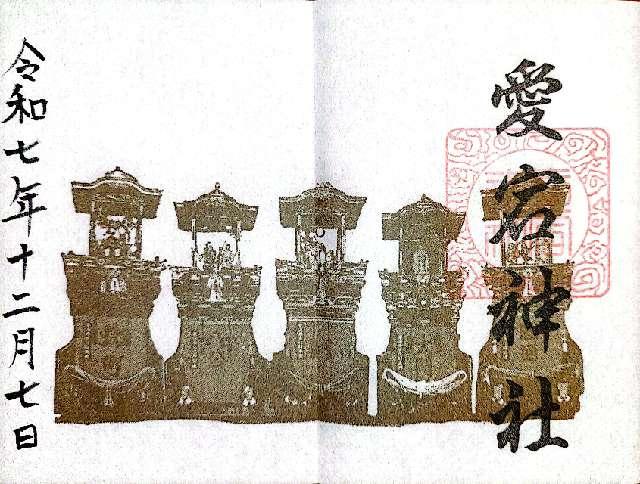 愛宕神社
令和七年十二月七日